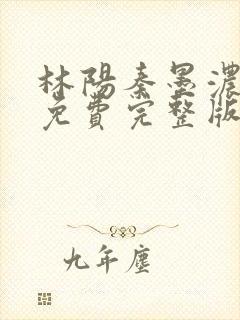 林陽秦墨濃
免費完整版
九年塵